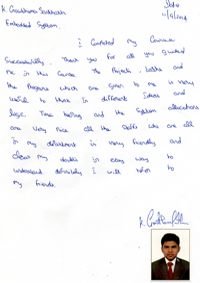 Date
Embedded System.
I Completed my Course
Successfully. Thank you for all you Guided
me in this Course. The Projects, Labs and
the Programs which are given to me is very
useful to think in different Ideas and
logic. Time being and the System allocations
are very nice. all the Staffs who are all
In my department is very friendly and
clear my doubts in easy way to
understand definitely I will refer to
my friends.